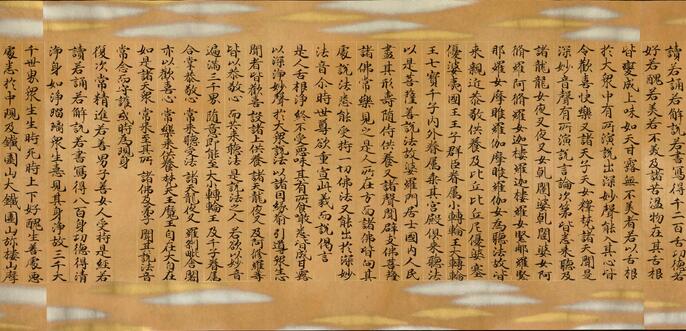 讀若誦若解說若書寫得千二百舌功德若
好若醜若美不美及諸苦澁物在其舌根
皆變成上味如天甘露無不美者若以舌根
於大衆中有所演說出深妙聲能入其心皆
令歡喜快樂又諸天子天女釋梵諸天聞是
深妙音聲有所演說言論次第皆悉來聽及
諸龍龍女夜叉夜叉女乾闥婆乾闥婆女阿
脩羅阿脩羅女迦樓羅迦樓羅女緊那羅緊
那羅女摩睺羅伽摩睺羅伽女為聽法故皆
來親近恭敬供養及比丘比丘尼優婆塞
優婆夷國王王子群臣眷属小轉輪王大轉輪
王七寶千子內外眷属乘其宮殿俱來聽法
以是菩薩善說法故婆羅門居士國內人民
盡其形壽隨侍供養又諸聲聞辟支佛菩薩
諸佛常樂見之是人所在方面諸佛皆向其
處說法悉能受持一切佛法又能出於深妙
法音尒時世尊欲重宣此義而說偈言
是人舌根淨終不受惡味其有所食噉悉皆成甘露
以深淨妙聲於大衆說法以諸因緣喻引導衆生心
聞者皆歡喜設諸上供養諸天龍夜叉及阿脩羅等
皆以恭敬心而共來聽法是說法之人若欲以妙音
遍滿三千界隨意即能至大小轉輪王及千子眷属
合掌恭敬心常來聽受法諸天龍夜叉羅剎毗舍闍
亦以歡喜心常樂來供養梵天王魔王自在大自在
如是諸天衆常來至其所諸佛及弟子聞其說法音
常念而守護或時為現身
復次常精進若善男子善女人受持是經若
讀若誦若解說若書寫得八百身功德得清
淨身如淨瑠璃衆生憙見其身淨故三千大
千世界衆生生時死時上下好醜生善處惡
處悉於中現及鐵圍山大鐵圍山弥樓山摩